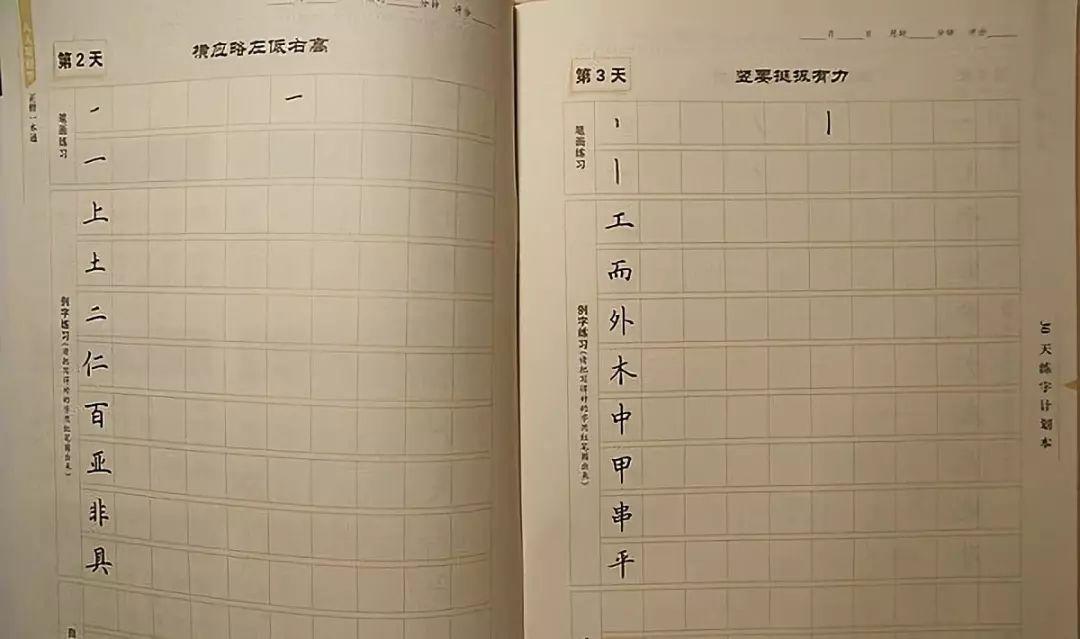 分钟 评分
第2天
横应略左低右高
正楷一本通
笔画练习
一
一
一
例字练习(请把写得好的字用红笔圈出来)
上
土
二
仁
百
亚
非
具
月 日 用时 分钟 评分
第3天
竖要挺拔有力
笔画练习
丨
丨
丨
例字练习(请把写得好的字用红笔圈出来)
工
而
外
木
中
甲
串
平
30天练字计划本